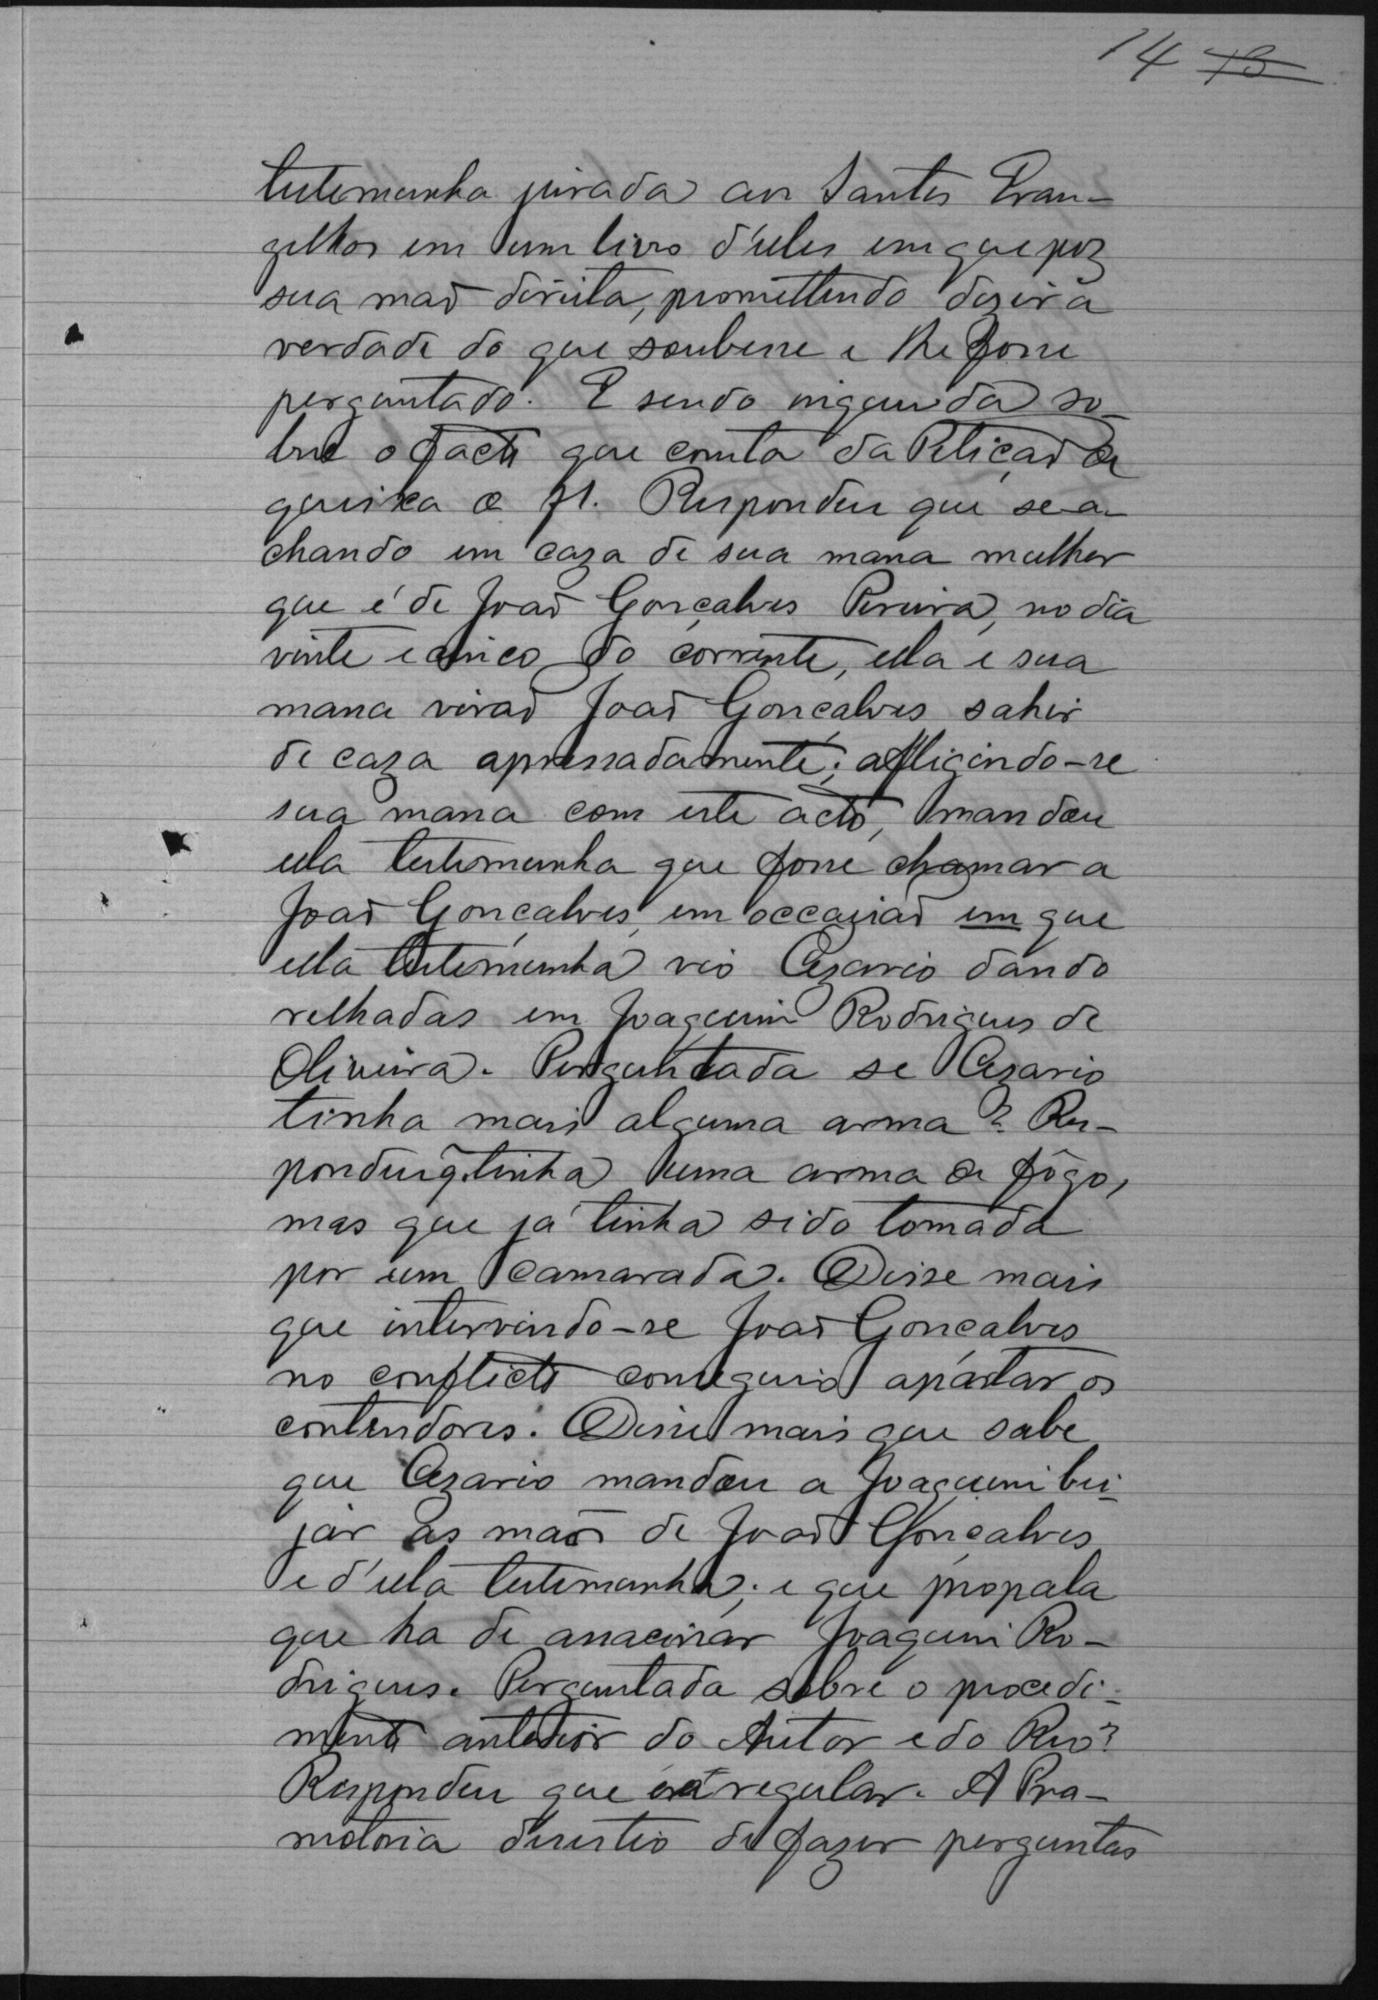 14 13
testemunha jurada aos Santos Evan-
gelhos em um livro d'elles em que poz
sua maõ direita, promettendo dizer a
verdade do que soubesse e lhe fosse
perguntado. E sendo inquirida so-
bre o facto que consta da Petiçaõ de
queixa a fl. Respondeu que se a-
chando em caza de sua mana mulher
que é de Joaõ Gonçalves Pereira, no dia
vinte e cinco do corrente, ella e sua
mana viraõ Joaõ Gonçalves sahir
de caza apressadamente; affligindo-se
sua mana com este acto, mandou
ella testemunha que fosse chamar a
Joaõ Gonçalves, em occaziaõ em que
ella testemunha vio Cezario dando
relhadas em Joaquim Rodrigues de
Oliveira. Perguntada se Cezario
tinha mais alguma arma? Res-
pondeu q̃ tinha uma arma de fôgo,
mas que já tinha sido tomada
por um camarada. Disse mais
que intervindo-se Joaõ Gonçalves
no conflicto conseguio apártar os
contendores. Disse mais que sabe
que Cezario mandou a Joaquim bei-
jar as maõs de Joaõ Gonçalves
e d'ella testemunha; e que propala
que ha de assacinar Joaquim Ro-
drigues. Perguntada sobre o procedi-
mento anterior do Autor e do Reo?
Respondeu que era regular. A Pro-
motoria desistio de fazer perguntas